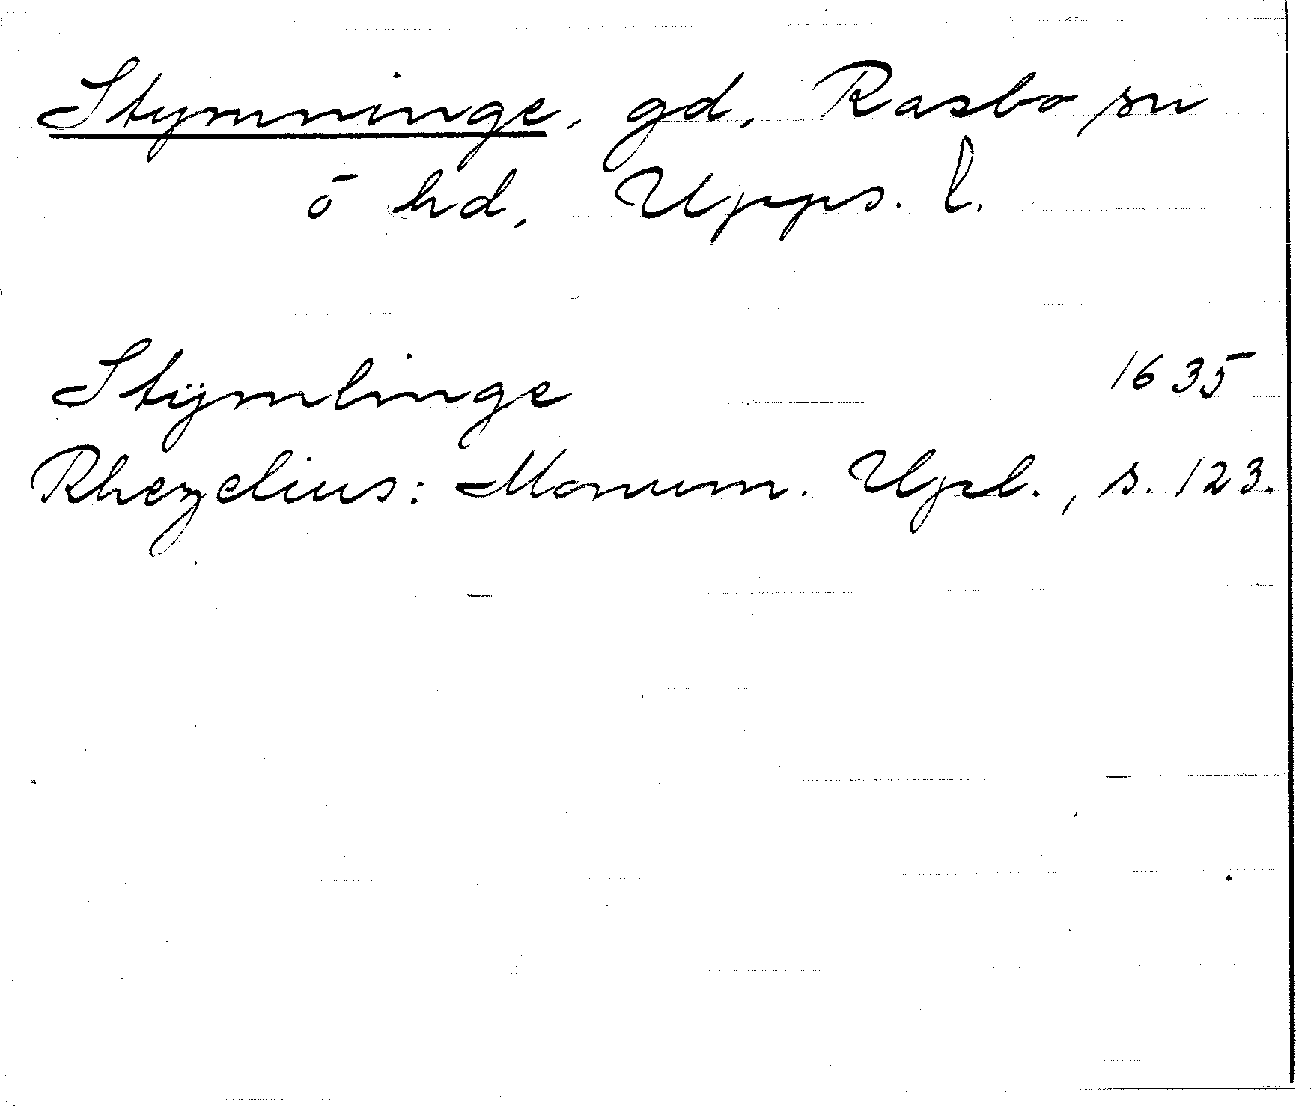 Stymninge, gd, Rasbo sn
ō hd, Upps. l.
Stÿmlinge 1635
Rhezelius: Monum. Upl., s. 123.